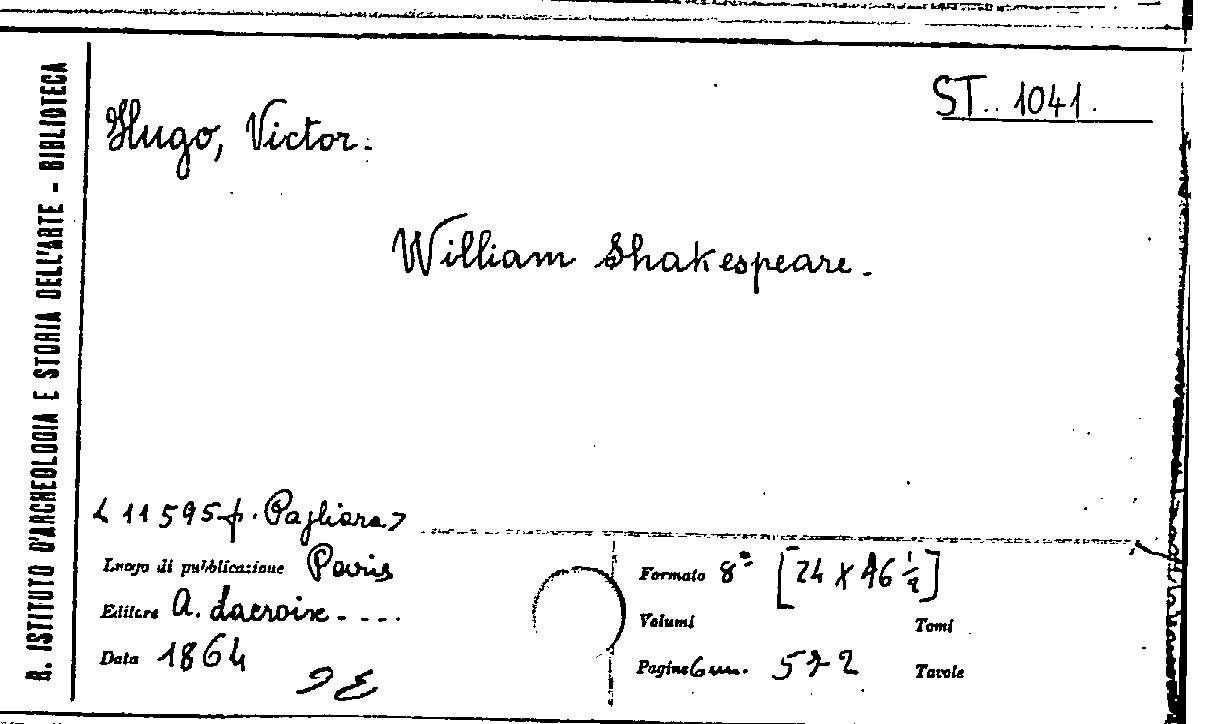 R. ISTITUTO D'ARCHEOLOGIA E STORIA DELL'ARTE - BIBLIOTECA
ST. 1041.
Hugo, Victor.
William Shakespeare.
< 11595 f. Pagliara >
Luogo di pubblicazione Paris
Editore A. Lacroix - ...
Data 1864
Formato 8° [24 x 16 ½]
Volumi Tomi
Pagine 6 nn. 572 Tavole